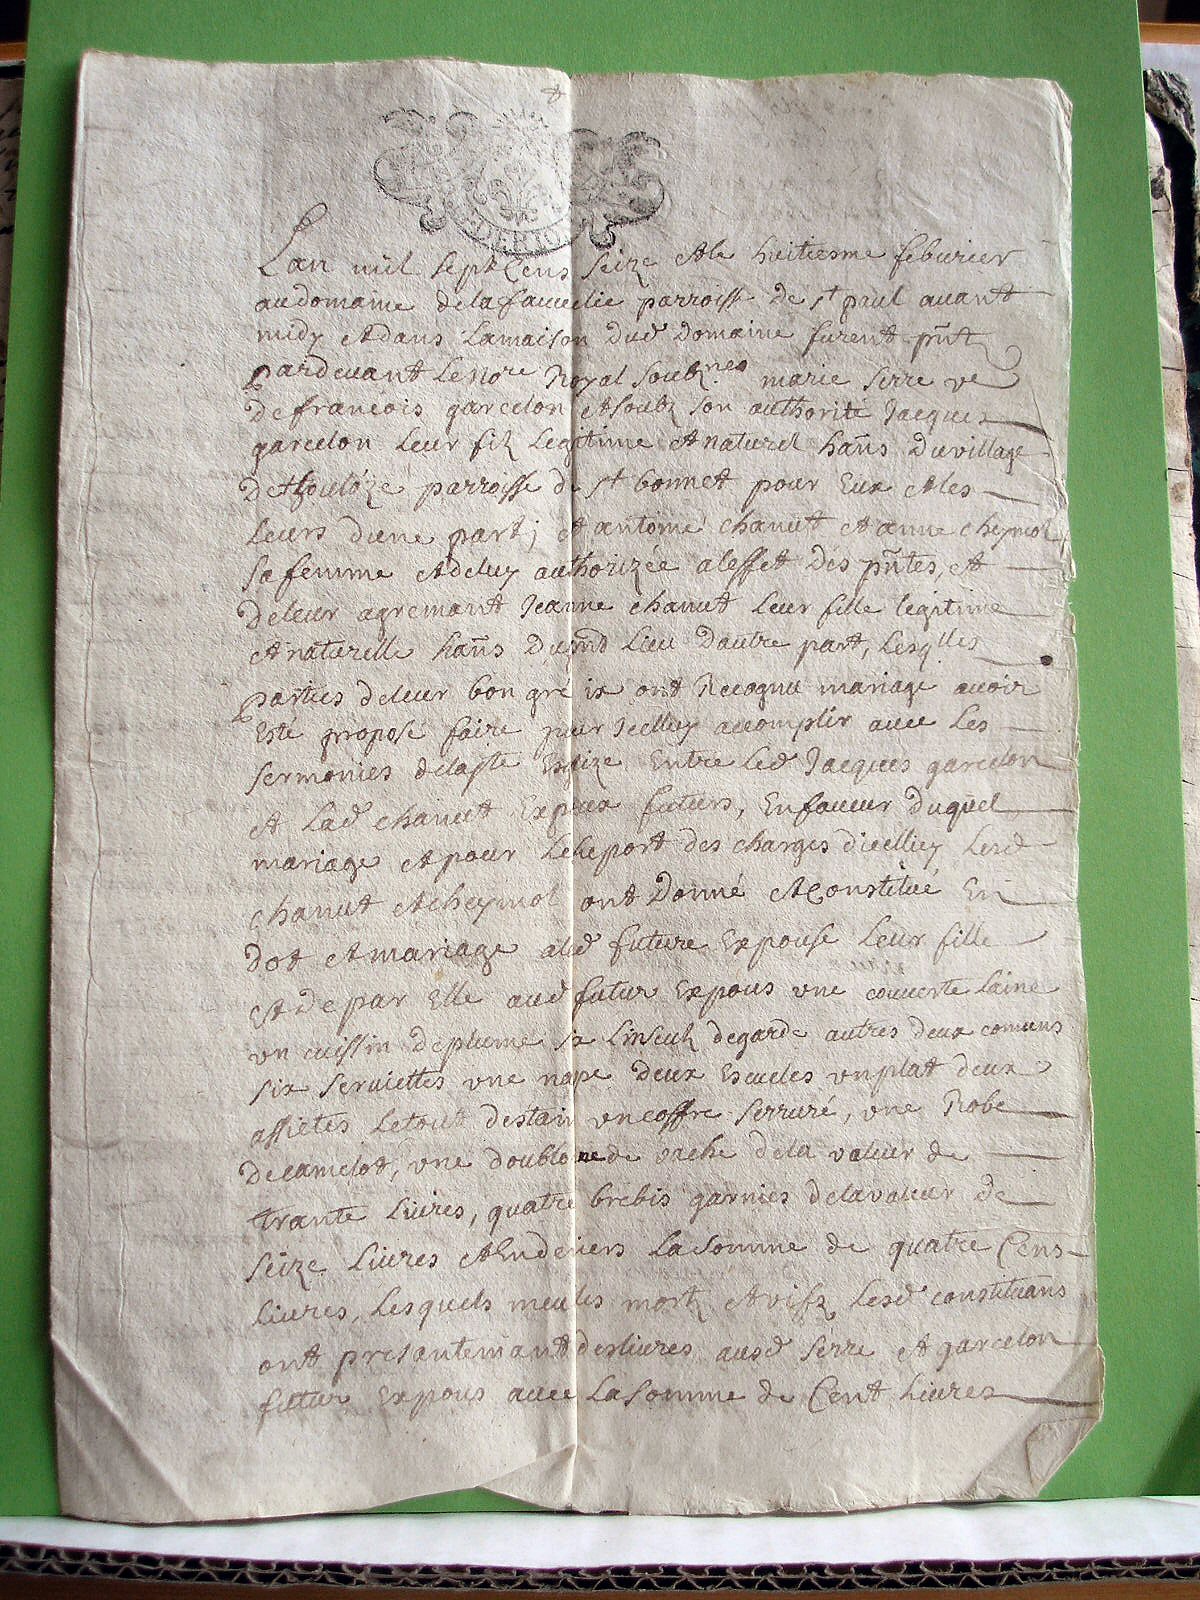 DE RIOM
Lan mil sept Cens seize et le huitiesme feburier
au domaine de la faucelie parroisse de st paul auant
midy et dans la maison dud domaine furent pnts
pardeuant le nore Royal soubz.nes marie serre ve
de francois garcelon et soubz son authorité Jacques
garcelon leur filz legitime et naturel hans du village
de parroisse de st bonnet pour eux et les
leurs dune part; et antoine chanut et anne cheymol
sa femme et de luy authorizée a leffet des pntes, et
de leur agremant Jeanne chanut leur fille legitime
et naturelle hans lieu dautre part, lesqlles
parties de leur bon gré ix ont Recognu mariage auoir
esté proposé faire pour Icelluy accomplir auec les
sermonies de la ste Esglize entre led Jacques garcelon
et lad chanut Expoux futurs, En faueur duquel
mariage et pour le suport des charges dicelluy lesd
chanut et cheymol ont Donné et Constitué En
dot et mariage a lad future Expouse leur fille
et de par Elle aud futur Expous vne couuerte laine
vn cuissin de plume six linseulz de garde autres deux comuns
six seruiettes vne nape deux Escueles vn plat deux
assietes le tout destain vn coffre serruré, vne Robe
de camelot, vne doublone de vache de la valeur de
trante liures, quatre brebis garnies de la valeur de
seize liures et En deniers la somme de quatre Cens
liures, lesquels meubles mortz et vifz lesd constituans
ont presantemant desliures ausd serre et garcelon
futur Expous auec la somme de Cent liures